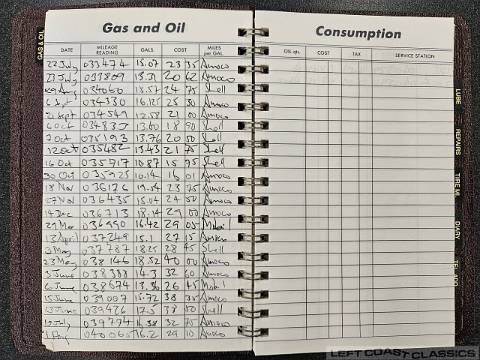 Gas and Oil
GAS & OIL
DATE MILEAGE READING GALS. COST MILES per GAL.
22 July 033474 15.07 23 35 Amoco
23 July 033809 20 42 Amoco
034060 24 75 Shell
6 Sept 034330 16.125 25 30 Amoco
21 Sept 034549 12.58 21 00 Amoco
6 Oct 034830 13.60 18 90 Shell
7 Oct 035193 13.76 20 50 Shell
12 Oct 035482 13.43 21 75 Shell
16 Oct 035717 10.87 15 75 Shell
30 Oct 035925 10.14 16 01 Amoco
18 Nov 036126 19.54 23 75 Amoco
27 Nov 036435 15.04 24 50 Amoco
14 Dec 036713 18.14 29 00 Amoco
29 Mar 036990 16.42 29 05 Mobil
13 April 037249 15.1 27 15 Amoco
May 037727 18.25 28 45 Shell
23 May 038146 18.52 40 00 Amoco
3 June 038388 14.3 32 60 Amoco
6 June 038674 13.30 26 45 Mobil
15 June 039007 16.72 38 35 Amoco
039426 17.5 38 50 Shell
10 July 039774 16.38 32 75 Amoco
16.2 29 10 Amoco
Consumption
OIL qts. COST TAX SERVICE STATION
LUBE
REPAIRS
TIRE MI
DIARY
TEL ADD
LEFT COAST CLASSICS